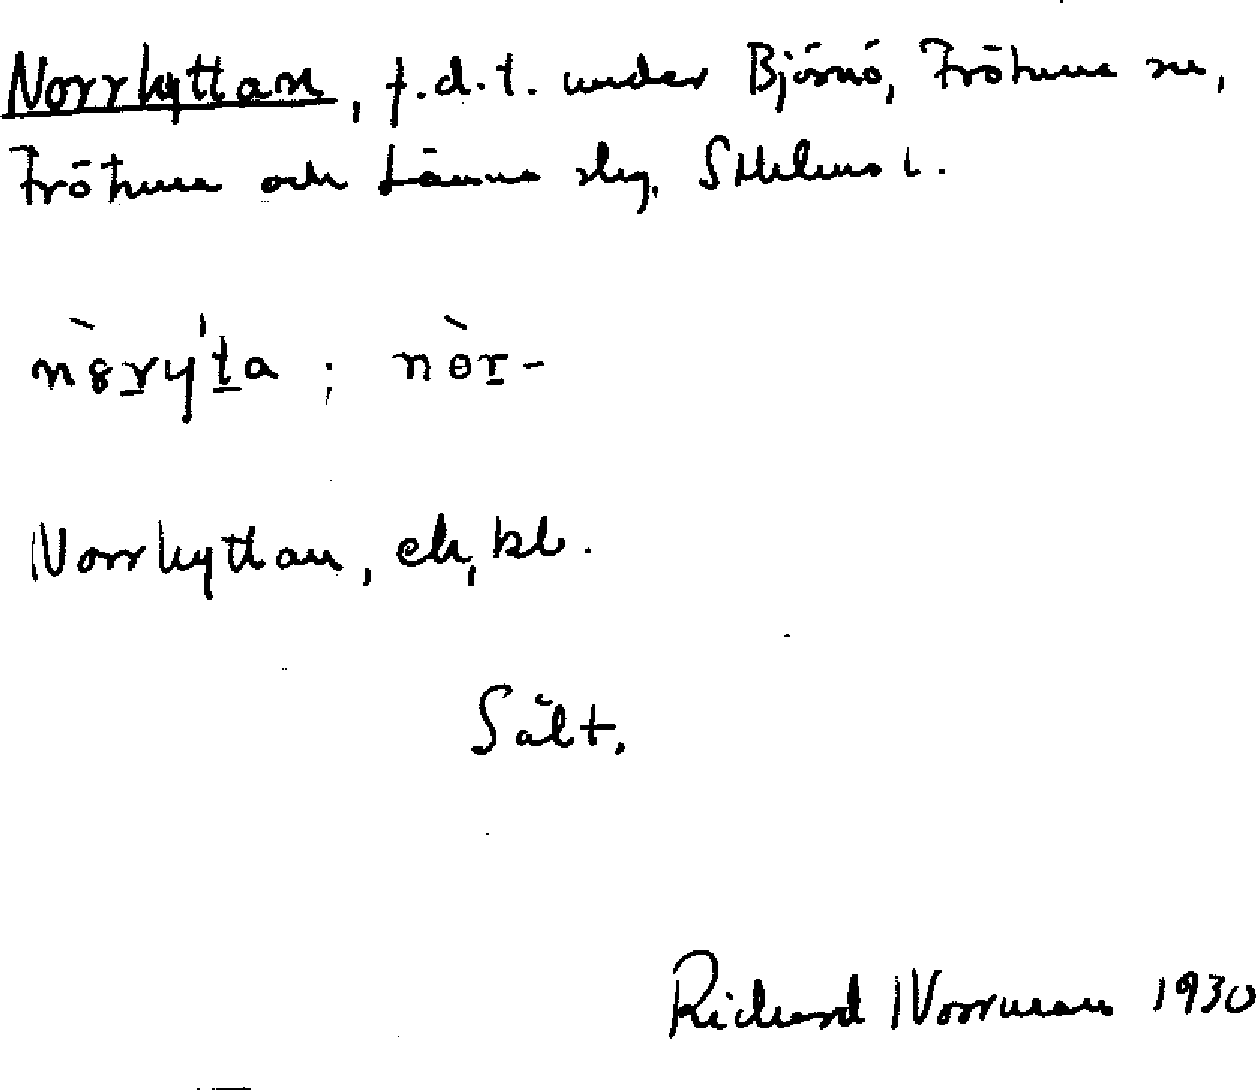 Norrhyttan, f.d.t. under Björnö, Frötuna sn,
Frötuna och Länna slg, Sthlms l.
nòry̱'ṯa ; nòr-
Norrhyttan, ek, bl.
Sält.
Richard Norrman 1930